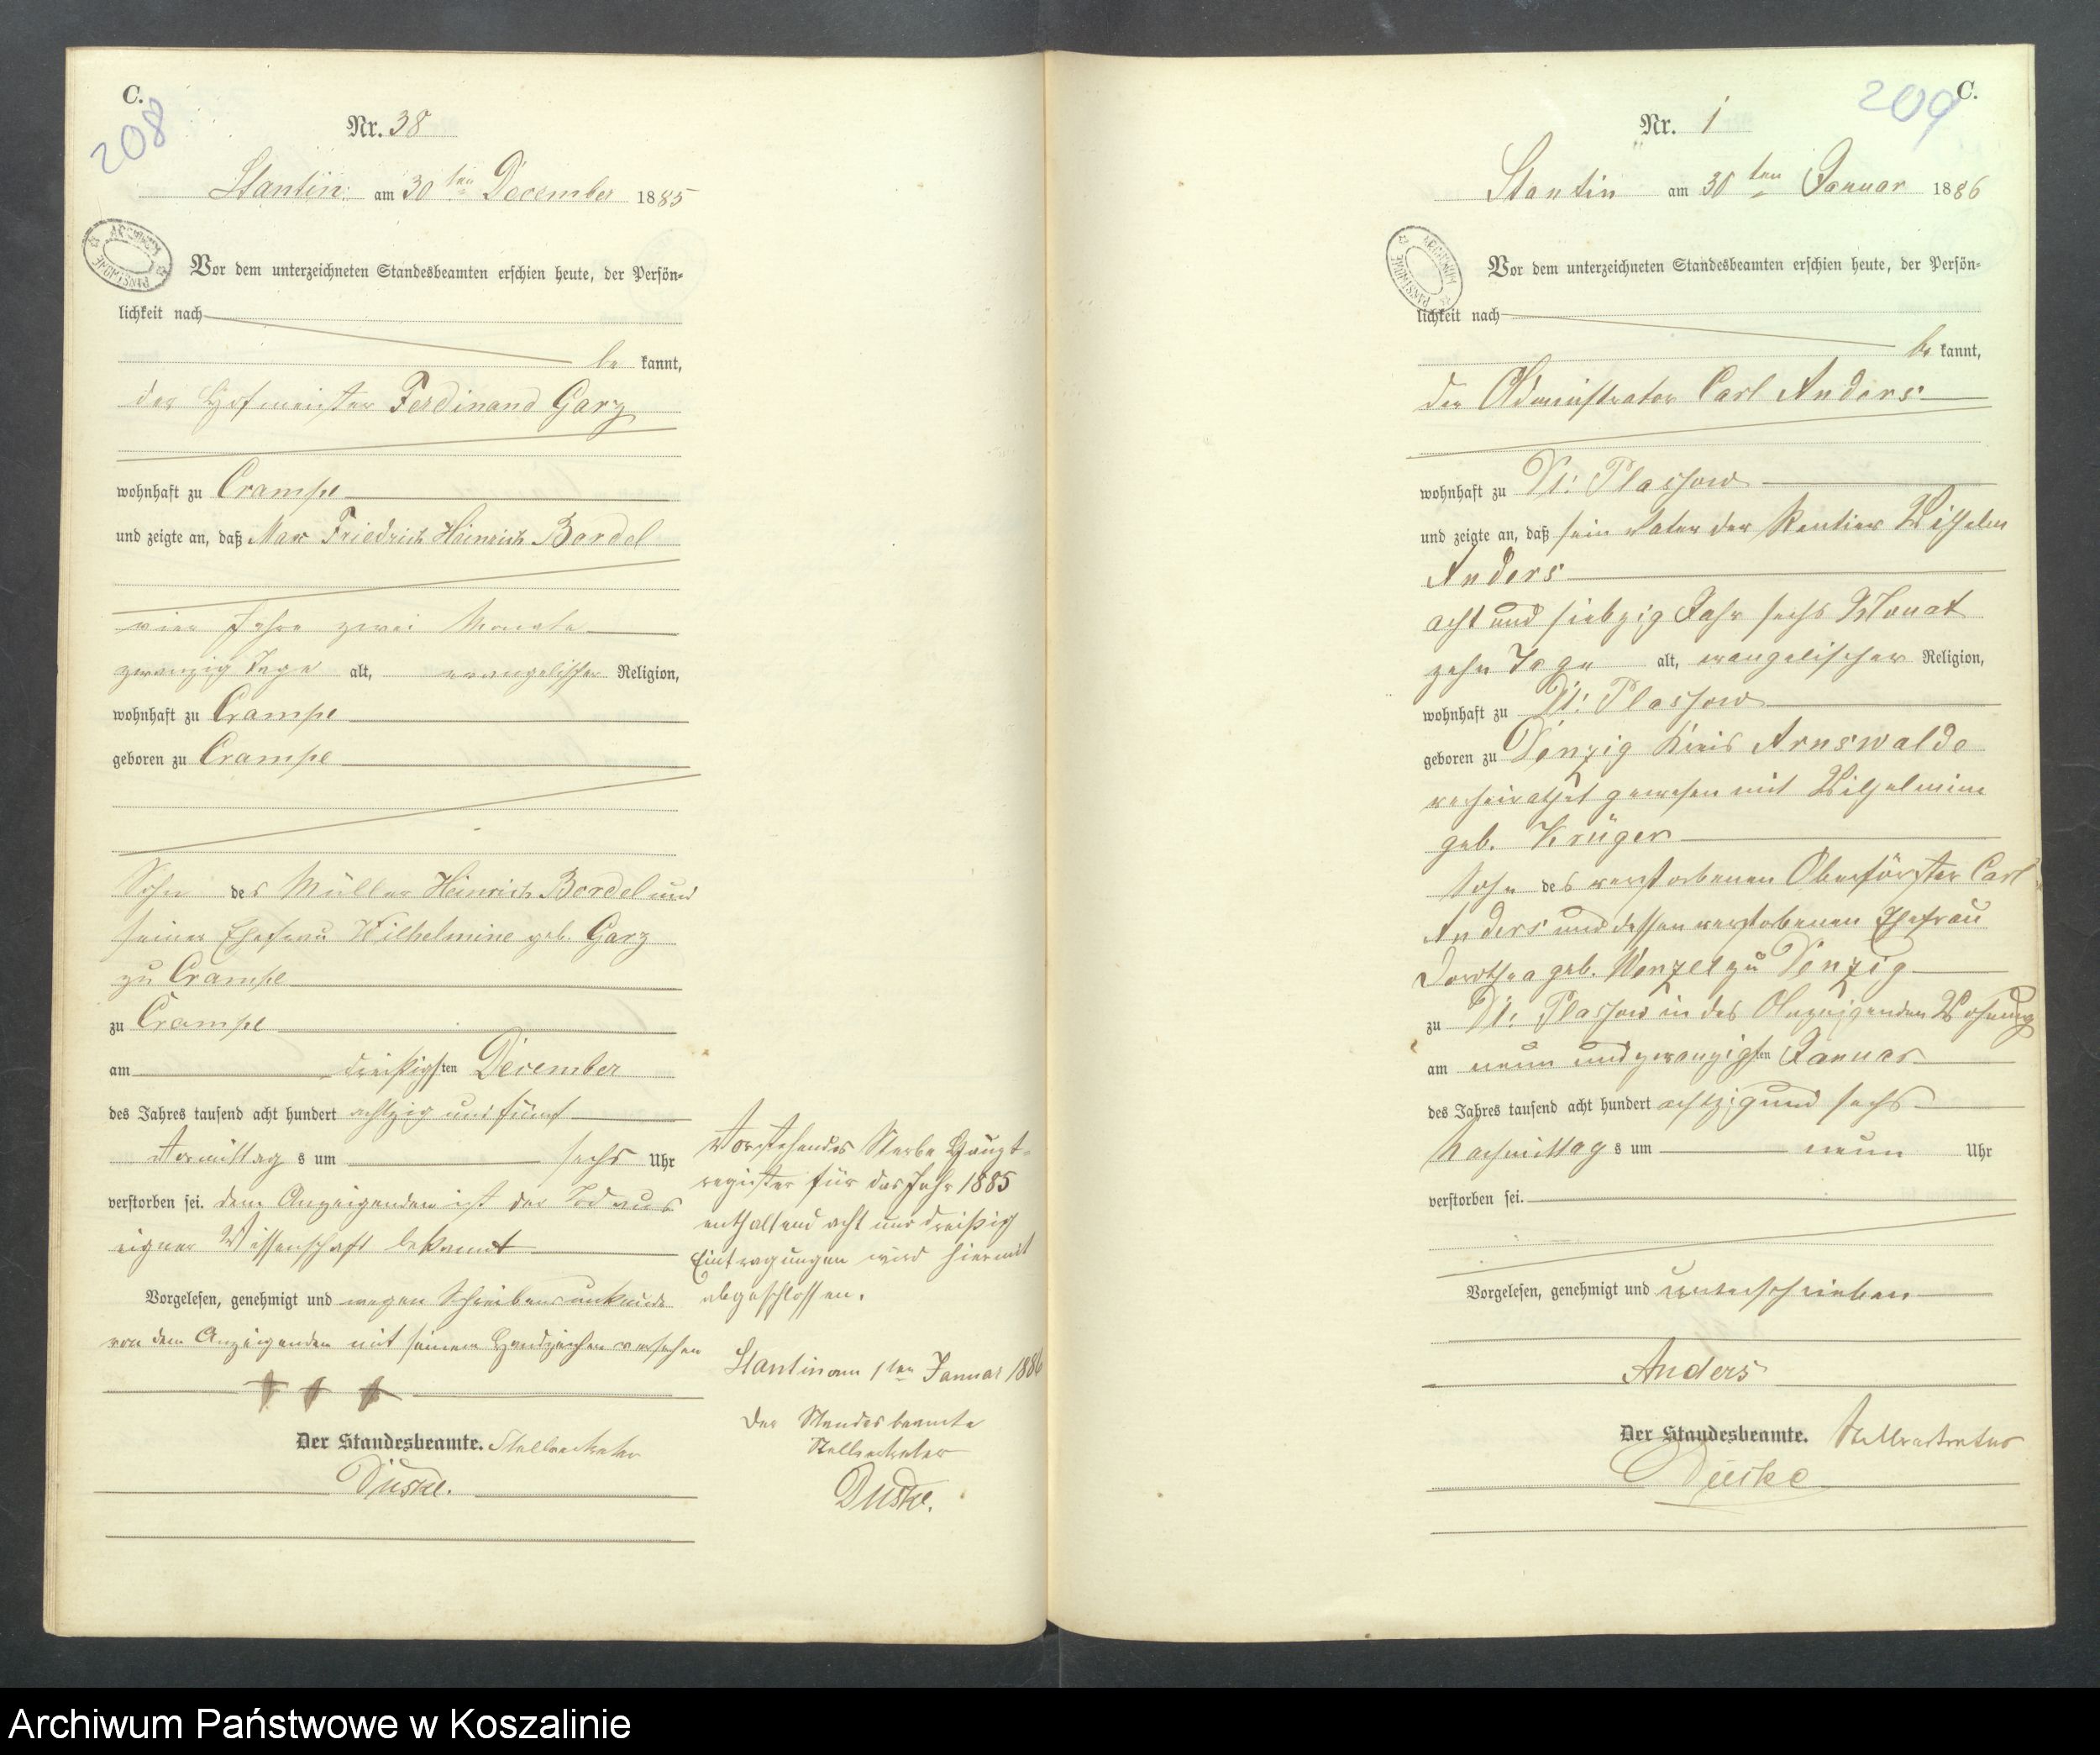 C.
208
Nr. 38
Stantin am 30ten December 1885
Vor dem unterzeichneten Standesbeamten erschien heute, der Persön-
lichkeit nach
be kannt,
der Hofmeister Ferdinand Garz
wohnhaft zu Crampe
und zeigte an, daß Max Friedrich Heinrich Bordel
vier Jahre zwei Monate
zwanzig Tage alt, evangelischer Religion,
wohnhaft zu Crampe
geboren zu Crampe
Sohn des Müller Heinrich Bordel und
seiner Ehefrau Wilhelmine geb. Garz
zu Crampe
zu Crampe
am dreißigsten December
des Jahres tausend acht hundert achtzig und fünf
Vormittag s um sechs Uhr
verstorben sei. dem Anzeigenden ist der Tod aus
eigner Wissenschaft bekannt
Vorgelesen, genehmigt und wegen Schreibensunkunde
von dem Anzeigenden mit seinem Handzeichen versehen
+ + +
Der Standesbeamte. Stellvertreter
Düske.
Vorstehendes Sterbe Haupt-
register für das Jahr 1885
enthaltend acht und dreißig
Eintragungen wird hiermit
abgeschlossen.
Stantin am 1ten Januar 1886
Der Standesbeamte
Stellvertreter
Düske.
209
C.
Nr. 1
Stantin am 30ten Januar 1886
ARCHIWUM PAŃSTWOWE
Vor dem unterzeichneten Standesbeamten erschien heute, der Persön-
lichkeit nach
be kannt,
der Administrator Carl Anders
wohnhaft zu Dt: Plassow
und zeigte an, daß sein Vater der Rentier Wilhelm
Anders
acht und siebzig Jahr sechs Monat
zehn Tage alt, evangelischer Religion,
wohnhaft zu Dt: Plassow
geboren zu Denzig Kreis Arnswalde
verheirathet gewesen mit Wilhelmine
geb. Krüger
Sohn des verstorbenen Oberförster Carl
Anders und dessen verstorbenen Ehefrau
Dorothea geb. Wenzel zu Denzig
zu Dt: Plassow in des Anzeigenden Wohnung
am neun und zwanzigsten Januar
des Jahres tausend acht hundert achtzig und sechs
Nachmittag s um neun Uhr
verstorben sei.
Vorgelesen, genehmigt und unterschrieben
Anders
Der Standesbeamte. Stellvertreter
Düske
Archiwum Państwowe w Koszalinie